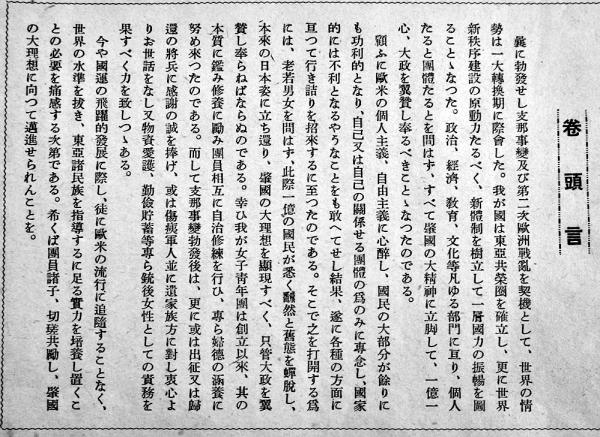 卷頭言
曩に勃發せし支那事變及び第二次歐洲戰亂を契機として、世界の情
勢は一大轉換期に際會した。我が國は東亞共榮圈を確立し、更に世界
新秩序建設の原動力たるべく、新體制を樹立して一層國力の振暢を圖
ることゝなつた。政治、經濟、敎育、文化等凡ゆる部門に亙り、個人
たると團體たるとを問はず、すべて肇國の大精神に立脚して、一億一
心、大政を翼贊し奉るべきことゝなつたのである。
顧ふに歐米の個人主義、自由主義に心醉し、國民の大部分が餘りに
も功利的となり、自己又は自己の關係せる團體の爲のみに專念し、國家
的には不利となるやうなことをも敢へてせし結果、遂に各種の方面に
亙つて行き詰りを招來するに至つたのである。そこで之を打開する爲
には、老若男女を問はず、此際一億の國民が悉く飜然と舊態を蟬脫し、
本來の日本姿に立ち還り、肇國の大理想を顯現すべく、只管大政を翼
贊し奉らねばならぬのである。幸ひ我が女子靑年團は創立以來、其の
本質に鑑み修養に勵み團員相互に自治修練を行ひ、專ら婦德の涵養に
努め來つたのである。而して支那事變勃發後は、更に或は出征又は歸
還の將兵に感謝の誠を捧げ、或は傷痍軍人並に遺家族方に對し衷心よ
りお世話をなし又物資愛護、勤儉貯蓄等專ら銃後女性としての責務を
果すべく力を致しつゝある。
今や國運の飛躍的發展に際し、徒に歐米の流行に追隨することなく、
世界の水準を拔き、東亞諸民族を指導するに足る實力を培養し置くこ
との必要を痛感する次第である。希くば團員諸子、切磋共勵し、肇國
の大理想に向つて邁進せられんことを。